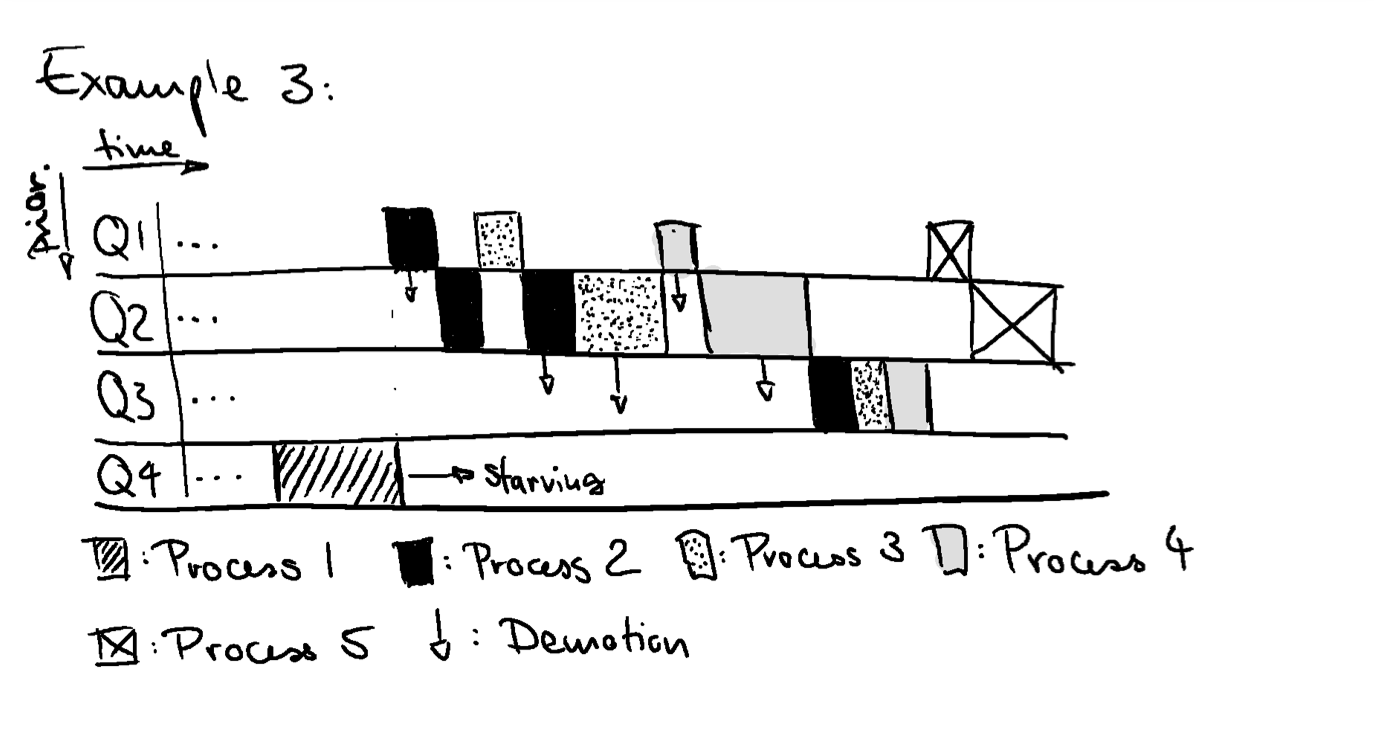 Example 3:
time
prior.
Q1 ...
Q2 ...
Q3 ...
Q4 ... starving
: Process 1 : Process 2 : Process 3 : Process 4
: Process 5 : Demotion